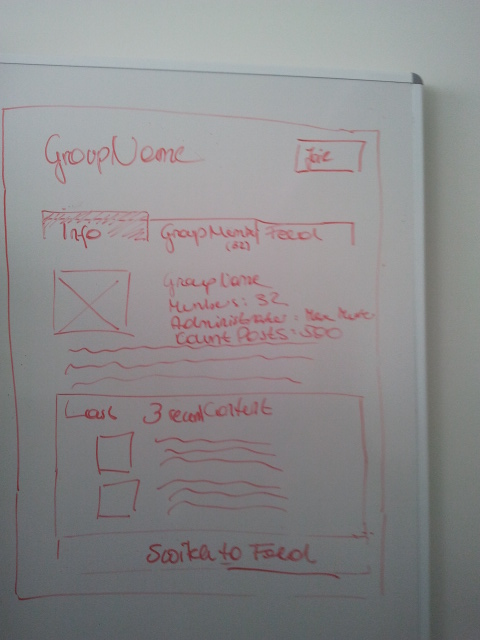 GroupName
Join
Info
GroupMember
Feed
(32)
GroupName
Members: 32
Administrator: Max Muste
Count Posts: 500
Last 3 recent Content
Switch to Feed